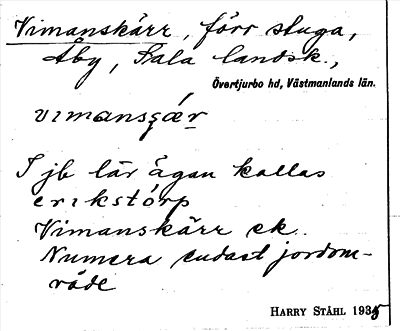 Vimanskärr, förr stuga,
Åby, Sala landsk.,
Övertjurbo hd, Västmanlands län.
vɪmansçǽr
I jb lär ägan kallas
erɪkstórp
Vimanskärr ek.
Numera endast jordom-
råde
HARRY STÅHL 1935